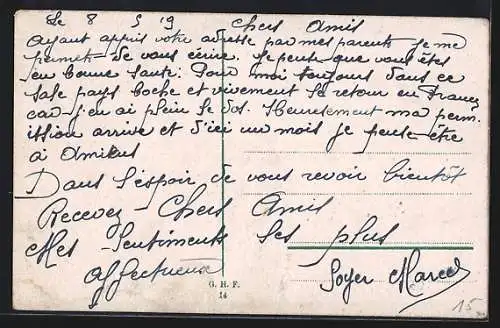 Le 8 5 19 Chers Amis
Ayant appris votre adresse par mes parents je me
permet de vous écrire. Je pense que vous êtes
en bonne santé. Pour moi toujours dans ce
sale pays boche et vivement le retour en France
car j'en ai plein le dos. Heureusement ma perm
ission arrive et d'ici un mois je peut-être
à Amiens
Dans l'espoir de vous revoir bientôt
Recevez Chers Amis
Mes Sentiments les plus
affectueux
Soyer Marcel
G. H. F.
14
15